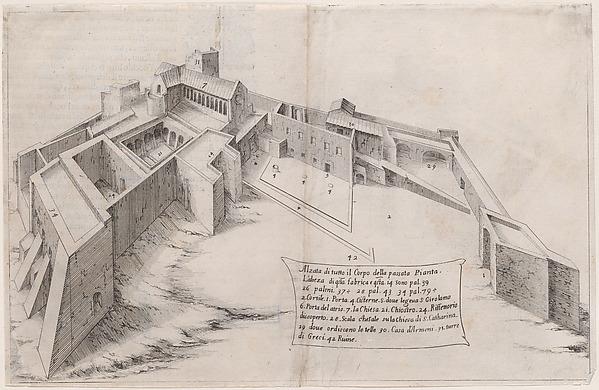 Alzata di tutto il Corpo della passata Pianta.
di qsta fabrica 14 sono pal. 39
26 palmi. 37 28 pal. 43 34 pal. 79
2. Cortile. 1. Porta. 4. Cisterne. 5. doue legeua S. Girolamo
6. Porta del atrio. 7. la Chiesa 21. Chiostro. 24. Refettorio
discoperto. 28. Scala sula Chiesa di S. Catharina.
29 doue ordiscono le tele 30. Casa d'Armeni. 31. torre
di Greci. 42 Ruine.
7
4
4
3
2
29
42
1